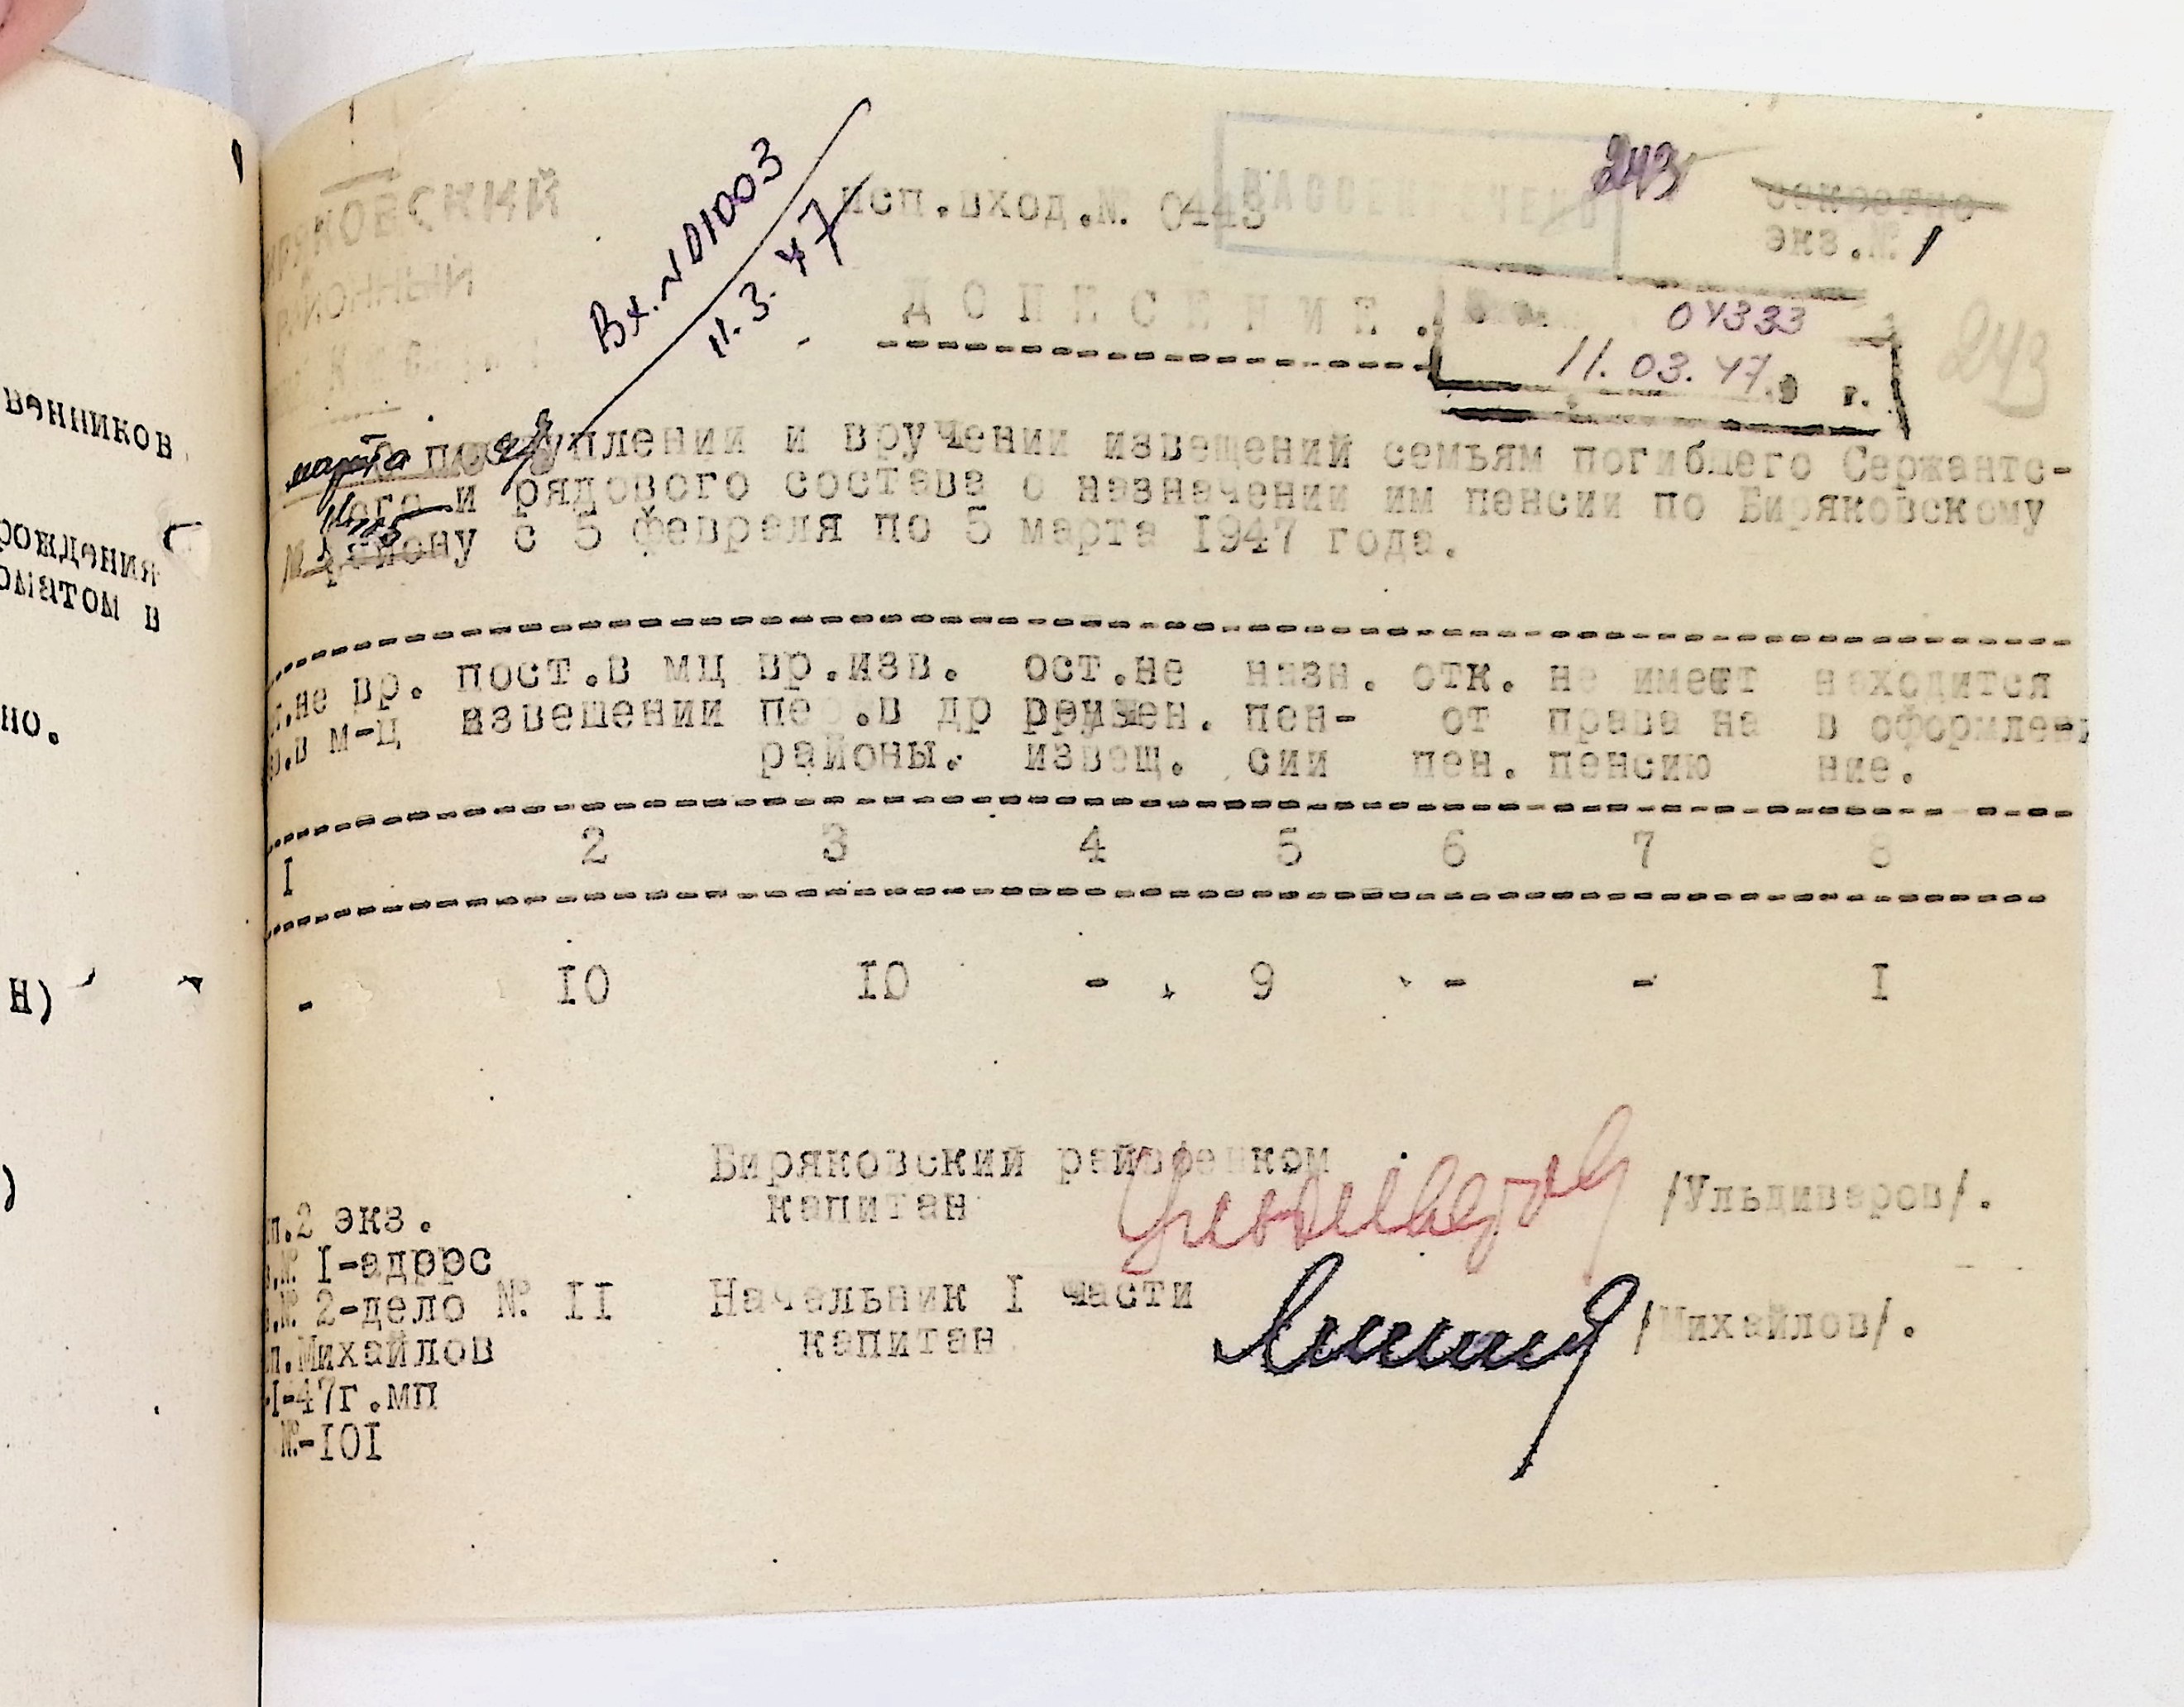 венников
рождения
оматом в
но.
Н)
)
БИРЯКОВСКИЙ
РАЙОННЫЙ
Вх. № 01003
11.3.47
исп.вход.№ 0443
РАССЕКРЕЧЕНО
243
секретно
экз.№ 1
ДОНЕСЕНИЕ.
04333
11.03.47. г.
243
марта
11
№ 115
О поступлении и вручении извещений семьям погибшего Сержантс-
кого и рядового состава о назначении им пенсии по Биряковскому
району с 5 февреля по 5 марта 1947 года.
т.не вр. пост.в мц вр.изв. ост.не назн. отк. не имеет находится
.в м-ц извещении пер.в др вручен. пен- от права на в оформлен
районы. извещ. сии пен. пенсию ние.
I 2 3 4 5 6 7 8
- IO IO - 9 - - I
Биряковский райвоенком
капитан /Ульдиверов/.
п.2 экз.
.№ I-адрес
.№ 2-дело № II
Начальник I части
капитан /Михайлов/.
п.Михайлов
I-47г.мп
№-IOI